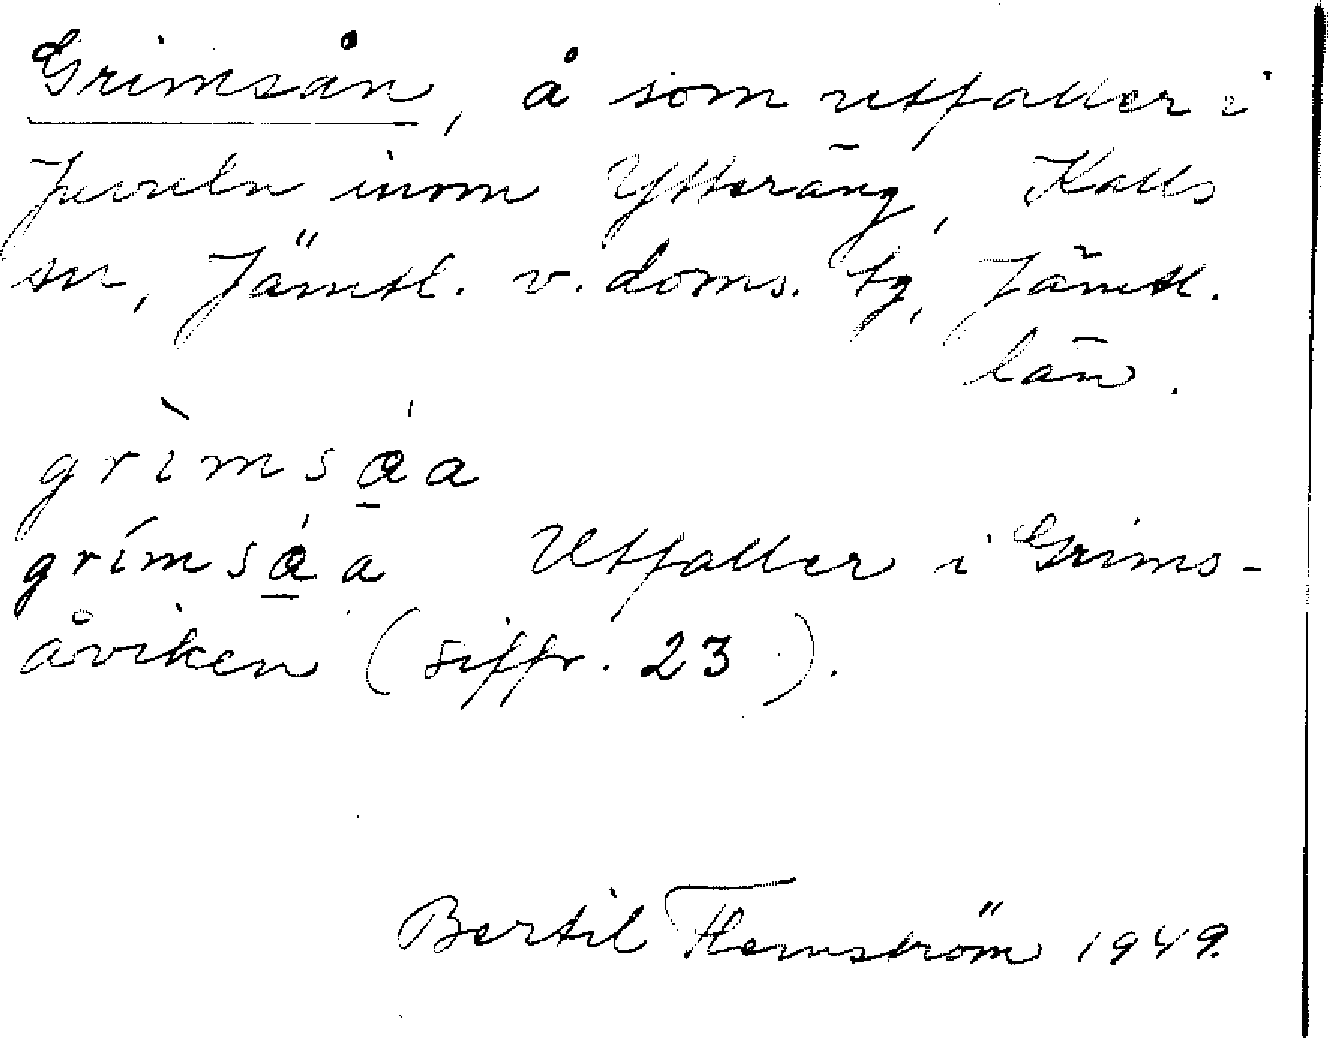 Grimsån, å som utfaller i
Juveln inom Ytteräng, Kalls
sn, Jämtl. v. doms. tg, Jämtl.
län.
grìmsa̱̍a
grímsa̱̍a Utfaller i Grims-
åviken (siffr. 23).
Bertil Flemström 1949.